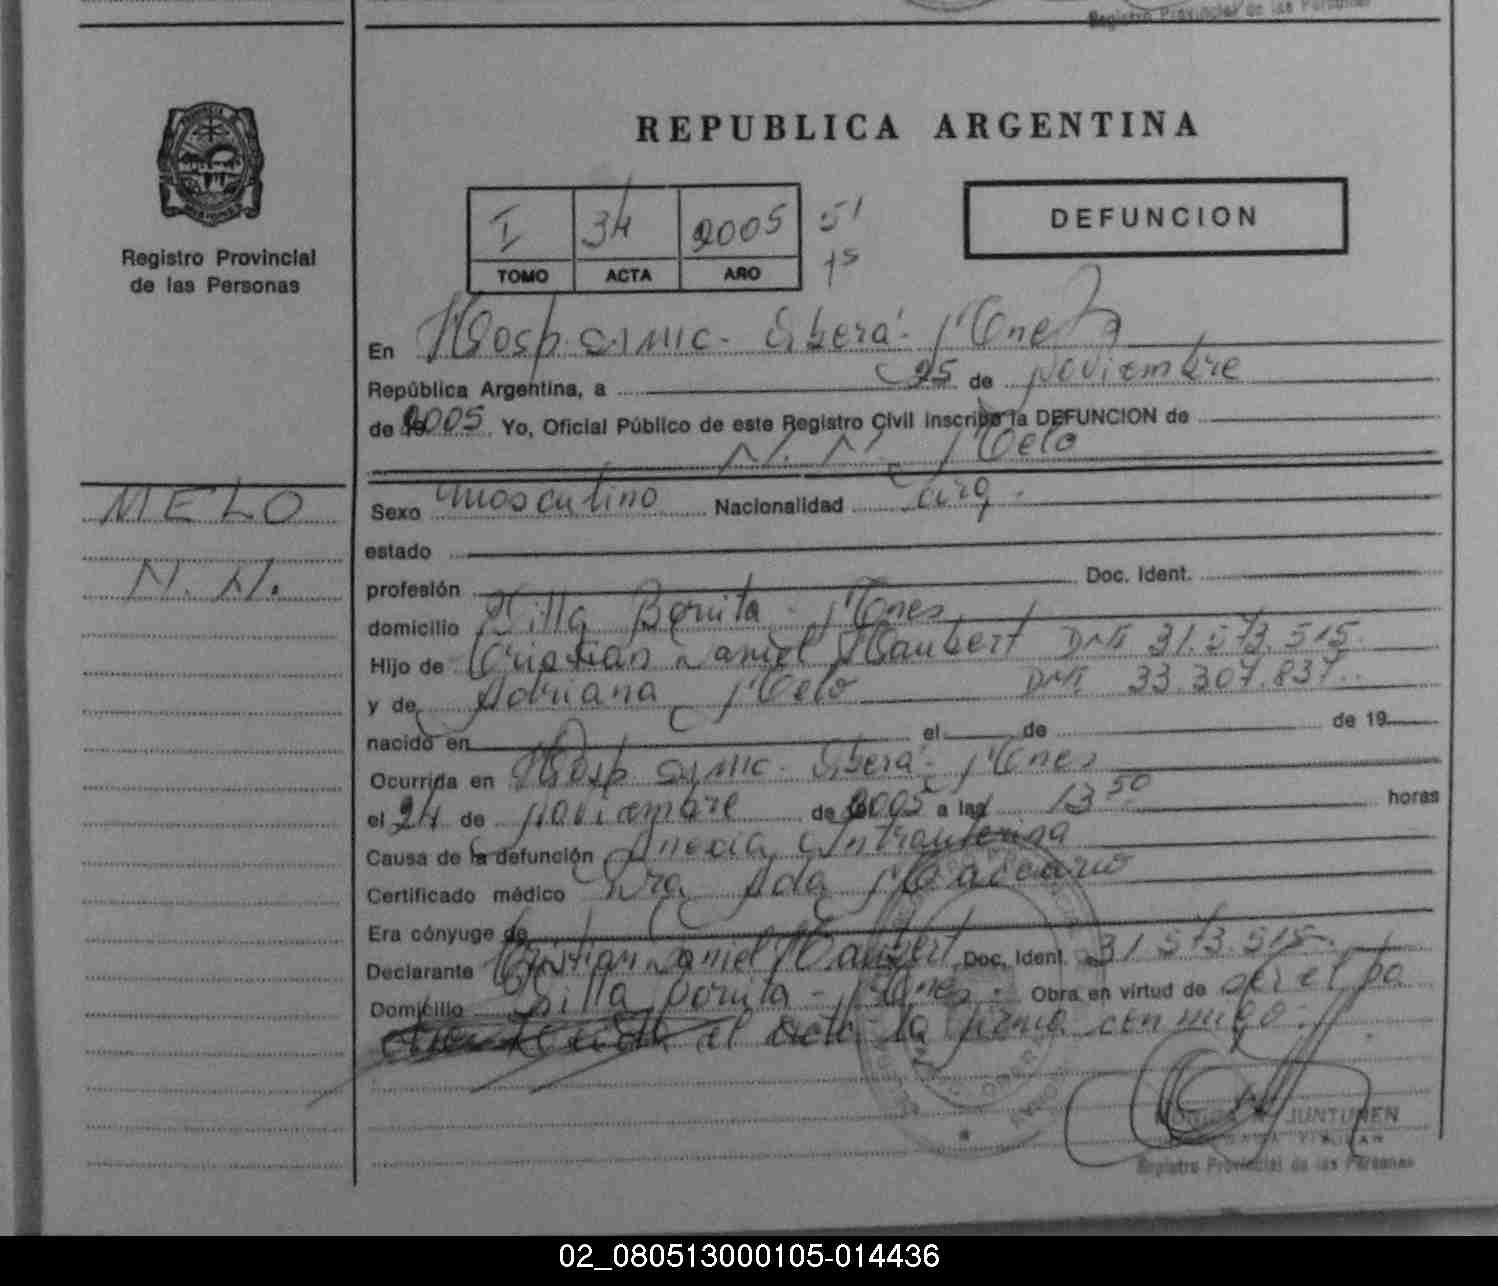 Registro Provincial de las Personas
REPUBLICA ARGENTINA
Registro Provincial
de las Personas
I 34 2005 51
TOMO ACTA AÑO 15
DEFUNCION
En Hosp. SAMIC - Oberá - Mnes
República Argentina, a 25 de noviembre
de 2005. Yo, Oficial Público de este Registro Civil inscribo la DEFUNCION de
N. N. Melo
MELO
N. N.
Sexo masculino Nacionalidad arg.
estado
profesión Doc. Ident.
domicilio Villa Bonita - Mnes
Hijo de Cristian Daniel Haubert DNI 31.573.515.
y de Adriana Melo DNI 33.307.837.
nacido en el de de 19
Ocurrida en Hosp SAMIC - Oberá - Mnes
el 24 de noviembre de 2005 a las 13 50 horas
Causa de la defunción Anoxia Intrauterina
Certificado médico Dra Ada
Era cónyuge de
Declarante Cristian Daniel Haubert Doc. Ident. 31.573.515-
Domicilio Villa Bonita - Mnes. Obra en virtud de ser el pa
el acta la firma conmigo.
JUNTUNEN
Registro Provincial de las Personas
02_080513000105-014436